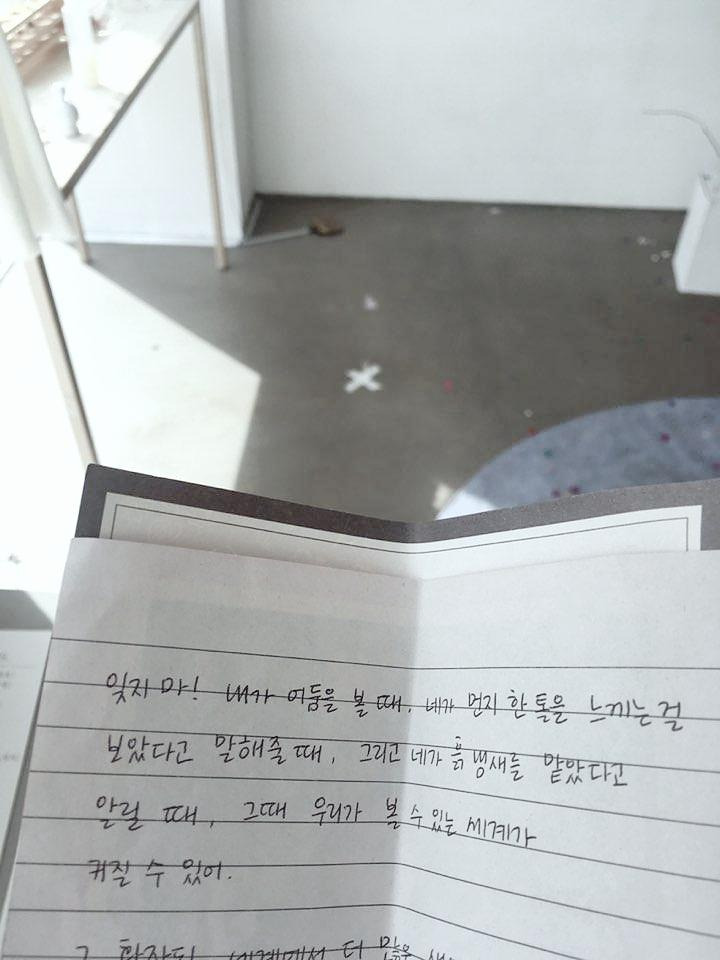 잊지 마! 내가 어둠을 볼 때, 네가 먼지 한 톨을 느끼는 걸
보았다고 말해줄 때, 그리고 네가 흙냄새를 맡았다고
알릴 때, 그때 우리가 볼 수 있는 세계가
커질 수 있어.
그 확장된 세계에서 더 많은